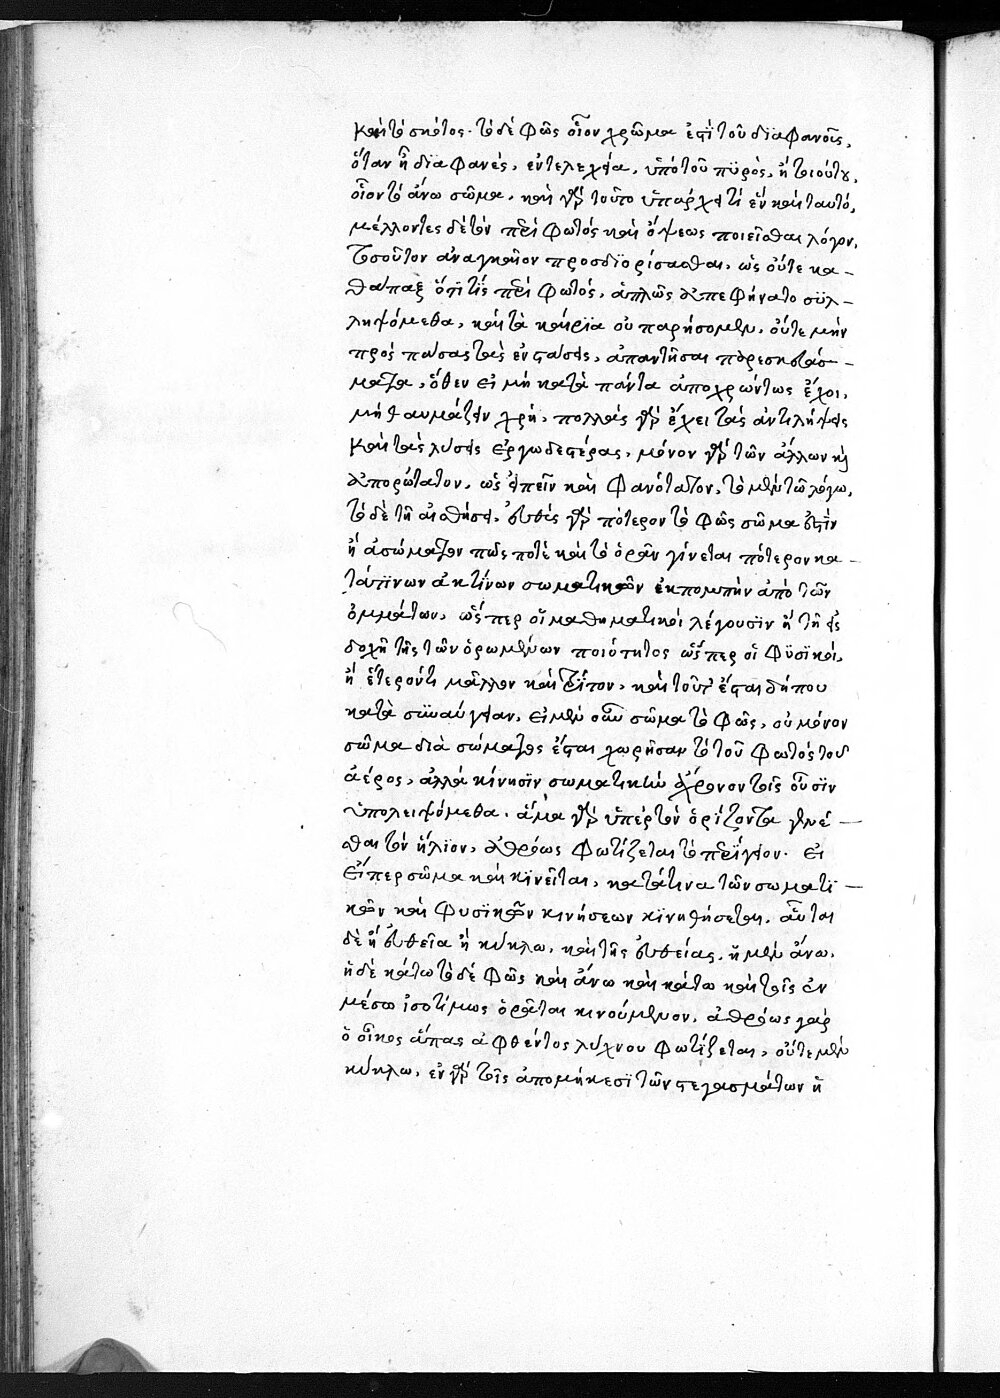 καὶ τὸ σκότος. τὸ δὲ φῶς οἷον χρῶμα ἐστὶ τοῦ διαφανοῦς,
ὅταν ᾖ διαφανὲς, ἐντελεχείᾳ, ὑπὸ τοῦ πϋρὸς, ἢ τοιούτου,
οἷον τὸ ἄνω σῶμα, καὶ γὰρ τοῦτο ὑπάρχει τί ἓν καὶ ταυτό,
μέλλοντες δὲ τὸν περὶ φωτὸς καὶ ὄψεως ποιεῖσθαι λόγον,
τοσοῦτον ἀναγκαῖον προσδϊορίσασθαι, ὡς οὔτε κα-
θάπαξ ὅ,τι τίς περὶ φωτός, ἁπλῶς ἀπεφήνατο σϋλ-
ληψόμεθα, καὶ τὰ καίρϊα οὐ παρήσομεν, οὔτε μὴν
πρὸς πάσας τὰς ἐνστάσεις, ἀπαντῆσαι
ὅθεν εἰ μὴ κατὰ πάντα ἀποχρώντως ἔχοι,
μὴ θαυμάζειν χρή, πολλὰς γὰρ ἔχει τὰς ἀντιλήψεις
καὶ τὰς λύσεις ἐργωδεστέρας, μόνον γὰρ τῶν ἄλλων καὶ
ἀπορώτατον, ὡς εἰπεῖν καὶ φανότατον, τὸ μὲν τῷ λόγω,
τὸ δὲ τῆ αἰσθήσει, εὐθὺς γὰρ πότερον τὸ φῶς σῶμα ἐστὶν
ἢ ἀσώματον πῶς ποτὲ καὶ τὸ ὁρᾶν γίνεται πότερον κα-
τά τϊνων ἀκτίνων σωματικῶν ἐκπομπὴν ἀπὸ τῶν
ὀμμάτων, ὥσπερ οἱ μαθηματικοὶ λέγουσϊν ἢ τῆ εἰς
δοχῆ τῆς τῶν ὁρωμένων ποιότητος ὥσπερ οἱ φϋσϊκοί,
ἢ ἕτερόν τι μᾶλλον καὶ τρίτον, καὶ τοῦτ' ἔσται δήπου
κατὰ συναύγειαν, εἰ μὲν οὖν σῶμα τὸ φῶς, οὐ μόνον
σῶμα διὰ σώματος ἔσται χωρῆσαν τὸ τοῦ φωτὸς τοῦ
ἀέρος, ἀλλὰ κίνησϊν σωματικὴν ἄχρονον τοῖς οὖσϊν
ὑπολειψόμεθα. ἅμα γὰρ ὑπὲρ τὸν ὁρίζοντα γενέ-
σθαι τὸν ἥλϊον, ἀθρόως φωτίζεται τὸ περίγειον. εἰ
εἴπερ σῶμα καὶ κϊνεῖται, κατά τινα τῶν σωματϊ-
κῶν καὶ φυσϊκῶν κινήσεων κϊνηθήσεται, αὗται
δὲ ἢ εὐθεῖα ἢ κύκλω, καὶ τῆς εὐθείας, ἡ μὲν ἄνω,
ἡ δὲ κάτω τὸ δὲ φῶς καὶ ἄνω καὶ κάτω καὶ τοῖς ἐν
μέσω ἰσοτίμως ὁρᾶται κινούμενον, ἀθρόως γὰρ
ὁ οἶκος ἅπας ἀφθέντος λύχνου φωτίζεται, οὔτε μὲν
κύκλω, ἐν γὰρ τοῖς ἀπομήκεσϊ τῶν στεγασμάτων ἢ